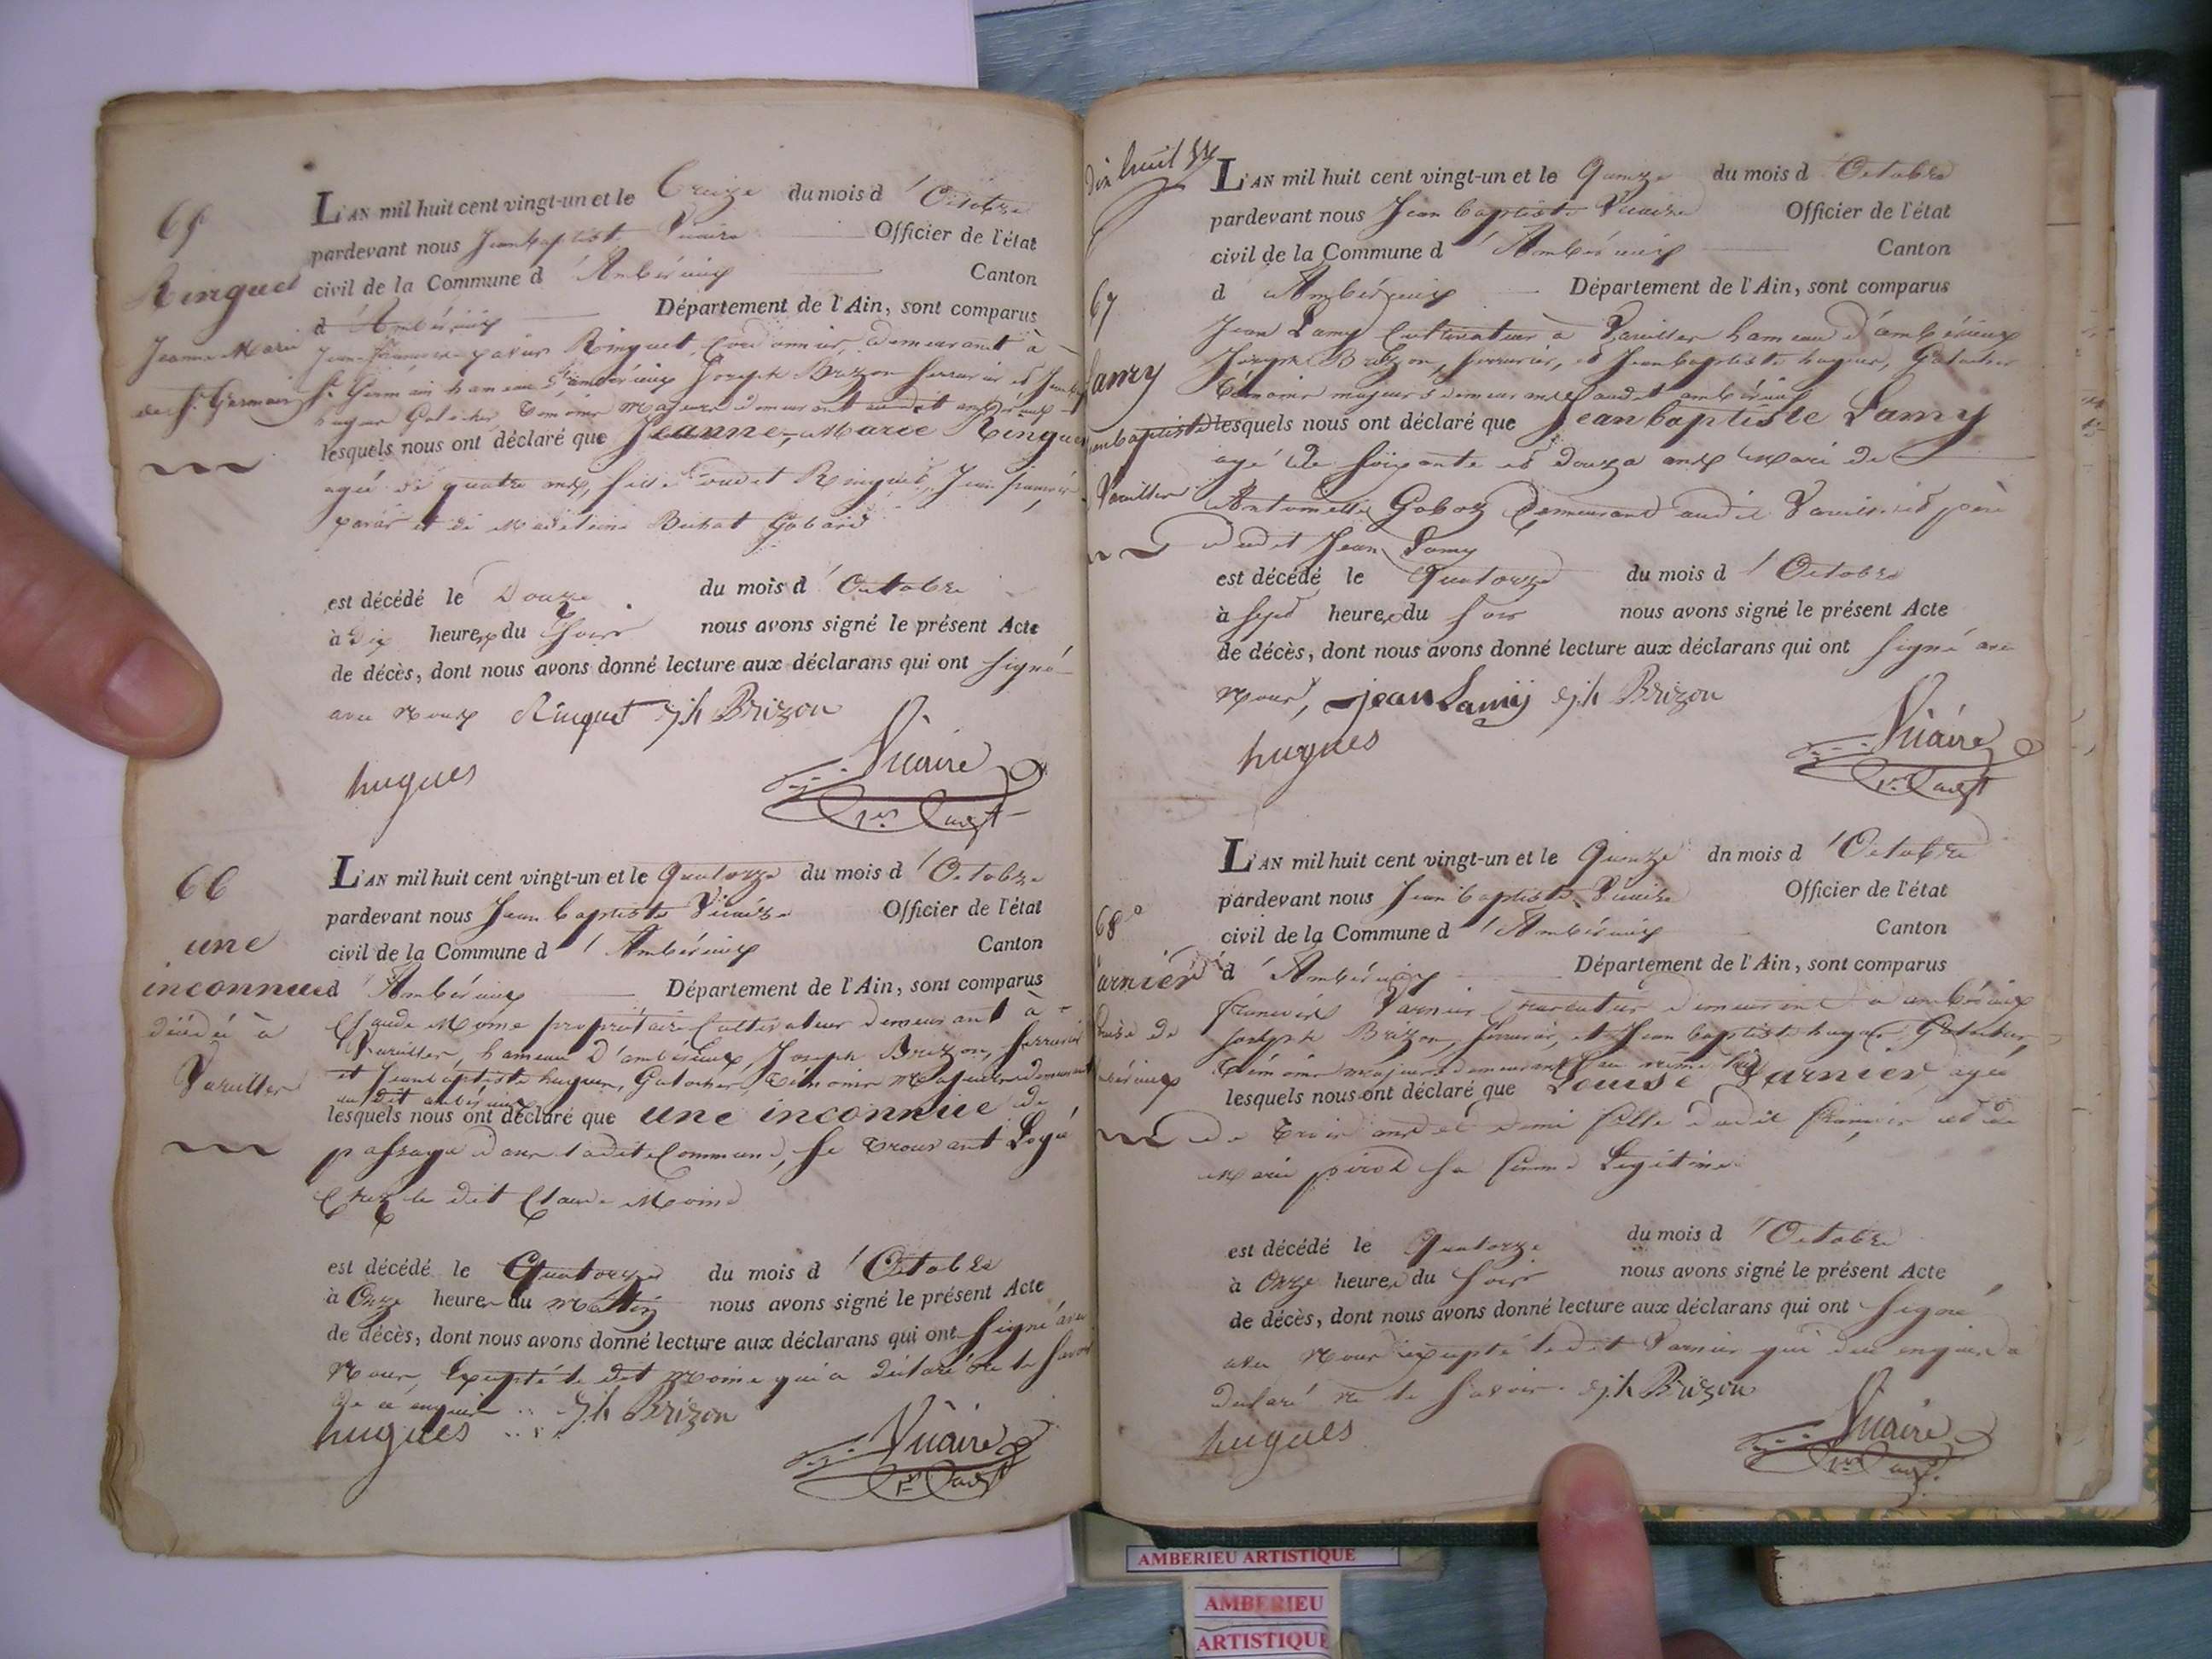 65
Ringuet
Jeanne Marie
de St. Germain
L'AN mil huit cent vingt-un et le Treize du mois d'Octobre
pardevant nous Jean baptiste Vicaire Officier de l'état
civil de la Commune d'Ambérieux Canton
d'Ambérieux Département de l'Ain, sont comparus
Jean françois Ringuet, Cordonnier, demeurant à
St. Germain hameau d'ambérieux Joseph Brizon Serrurier et Jean
hugues Galocher, Témoins Majeurs demeurant audit ambérieux
lesquels nous ont déclaré que Jeanne-Marie Ringuet
agée de quatre ans, fille dudit Ringuet, Jean françois
et de Madeleine
est décédé le Douze du mois d'Octobre
à Dix heures du Soir nous avons signé le présent Acte
de décès, dont nous avons donné lecture aux déclarans qui ont signé
avec Nous Ringuet Jph Brizon
hugues
Vicaire
1er
66
une
inconnue
décédée à
Vareilles
L'AN mil huit cent vingt-un et le Quatorze du mois d'Octobre
pardevant nous Jean baptiste Vicaire Officier de l'état
civil de la Commune d'Ambérieux Canton
d'Ambérieux Département de l'Ain, sont comparus
Claude Moine propriétaire Cultivateur demeurant à
Vareilles, hameau d'ambérieux, Joseph Brizon, Serrurier
et Jean baptiste hugues, Galocher, Témoins Majeurs demeurant
audit ambérieux
lesquels nous ont déclaré que une inconnue de
passage dans ladite Commune, se trouvant Logé
Chez le dit Claude Moine
est décédé le Quatorze du mois d'Octobre
à Onze heures du Matin nous avons signé le présent Acte
de décès, dont nous avons donné lecture aux déclarans qui ont signé avec
Nous, Excepté le dit Moine qui a déclaré ne le savoir
de ce enquis Jph Brizon
hugues
Vicaire
1er
dix huit
67
Lamy
Jean baptiste
Vareilles
L'AN mil huit cent vingt-un et le Quinze du mois d'Octobre
pardevant nous Jean baptiste Vicaire Officier de l'état
civil de la Commune d'Ambérieux Canton
d'Ambérieux Département de l'Ain, sont comparus
Jean Lamy Cultivateur à Vareilles hameau d'ambérieux
Joseph Brizon, Serrurier, et Jean baptiste hugues, Galocher
Témoins majeurs demeurans audit ambérieux
lesquels nous ont déclaré que Jean baptiste Lamy
agé de soixante et douze ans Mari de
Antoinette Goboz Demeurant audit Vareilles et père
dudit Jean Lamy
est décédé le Quatorze du mois d'Octobre
à sept heures du soir nous avons signé le présent Acte
de décès, dont nous avons donné lecture aux déclarans qui ont signé avec
Nous, jean Lamÿ Jph Brizon
hugues
Vicaire
1er
68
Varnier
Louise
L'AN mil huit cent vingt-un et le Quinze dn mois d'Octobre
pardevant nous Jean baptiste Vicaire Officier de l'état
civil de la Commune d'Ambérieux Canton
d'Ambérieux Département de l'Ain, sont comparus
françois Varnier demeurant à ambérieux
Joseph Brizon, Serrurier, et Jean baptiste hugues Galocher,
Témoins majeurs demeurant
lesquels nous ont déclaré que Louise Varnier agée
de Trois ans et demi fille dudit françois et de
Marie pirod sa femme Légitime
est décédé le Quatorze du mois d'Octobre
à Onze heures du Soir nous avons signé le présent Acte
de décès, dont nous avons donné lecture aux déclarans qui ont signé
avec Nous excepté ledit Varnier qui de ce enquis a
déclaré ne le savoir. Jph Brizon
hugues
Vicaire
1er
AMBERIEU ARTISTIQUE
AMBERIEU
ARTISTIQUE